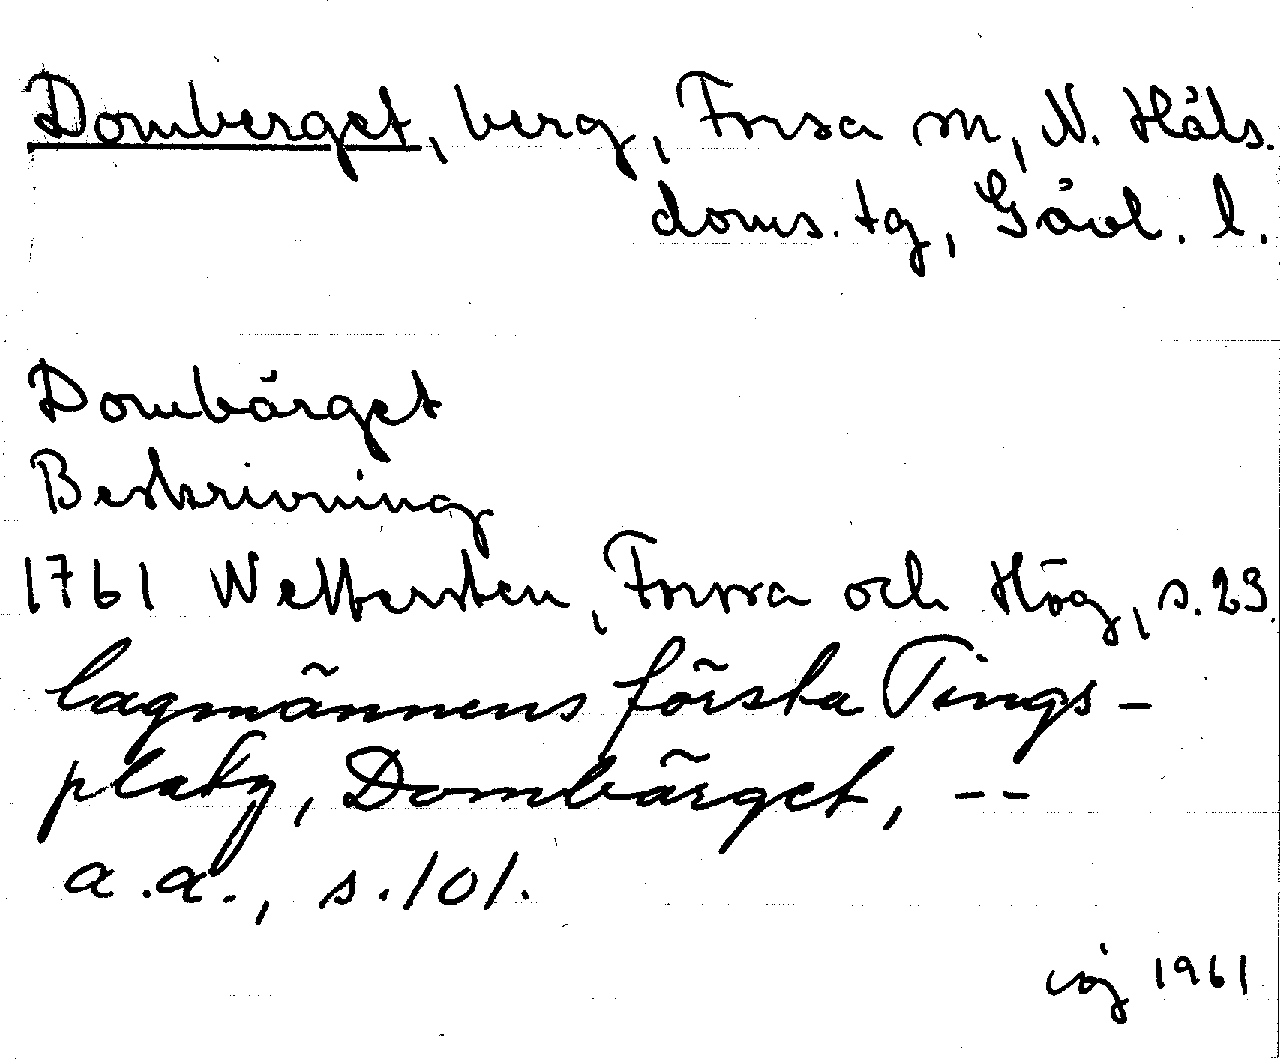 Domberget, berg, Forsa sn, N. Häls.
doms. tg, Gävl. l.
Dombärget
Beskrivning
1761 Wettersten, Forssa och Hög, s. 23.
lagmännens första Tings-
platz, Dombärget, --
a.a., s. 101.
1961